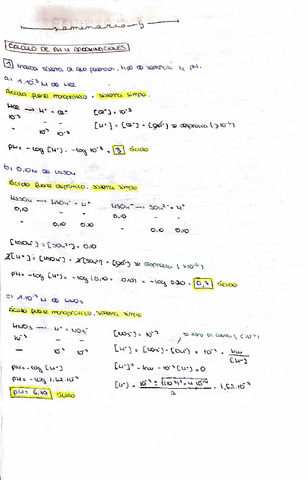 seminario 5
CÁLCULO DE PH Y APROXIMACIONES
1 Indica sistema de que partimos, tipo de sistema y pH.
a) 1·10⁻³ M de HCl
Ácido fuerte monoprótico, sistema simple.
HCl → H⁺ + Cl⁻ [Cl⁻] = 10⁻³
10⁻³ - - [H⁺] = [Cl⁻] + [OH⁻] se desprecia (>10⁻⁶)
- 10⁻³ 10⁻³
pH = -log [H⁺] = -log 10⁻³ = 3 ácido
b) 0,10M de H₂SO₄
Ácido fuerte diprótico, sistema simple
H₂SO₄ → HSO₄⁻ + H⁺ HSO₄⁻ → SO₄²⁻ + H⁺
0,10 - - 0,10 - -
- 0,10 0,10 - 0,10 0,10
[HSO₄⁻] = [SO₄²⁻] = 0,10
se desprecia (>10⁻⁶)
pH = -log [H⁺] = -log (0,10 + 0,10) = -log 0,20 = 0,7 ácido
c) 1·10⁻⁷ M de HNO₃
Ácido fuerte monoprótico, sistema simple
HNO₃ → H⁺ + NO₃⁻ [NO₃⁻] = 10⁻⁷
10⁻⁷ - - [H⁺] = [NO₃⁻] + [OH⁻] = 10⁻⁷ + Kw/[H⁺]
- 10⁻⁷ 10⁻⁷ [H⁺]² - Kw - 10⁻⁷[H⁺] = 0
pH = -log [H⁺]
pH = -log 1,62·10⁻⁷ = 1,62·10⁻⁷
pH = 6,79 ácido